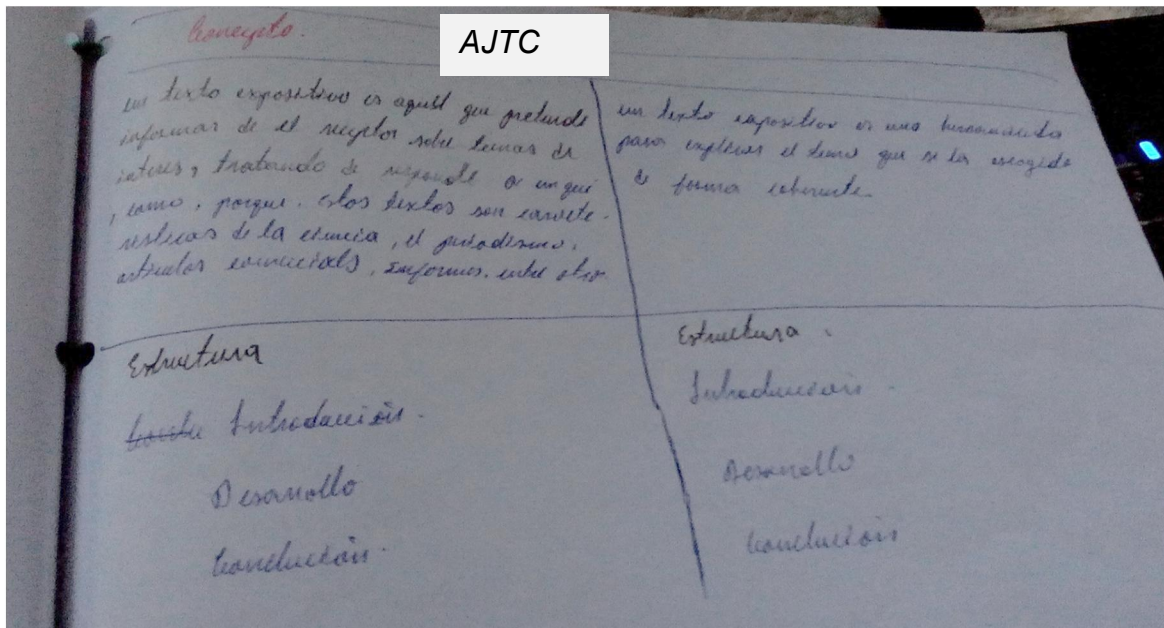 Concepto.
AJTC
un texto expositivo es aquel que pretende
informar de el receptor sobre temas de
interes, tratando de responde a un qué
, como, porque. Estos textos son caracte-
risticas de la ciencia, el periodismo,
articulos comerciales, Informes, entre otro
un texto expositivo es una herramienta
para explicar el tema que se ha escogido
de forma coherente.
Estructura
Introducción.
Desarrollo
Conclución.
Estructura.
Introducción.
Desarrollo
Conclución